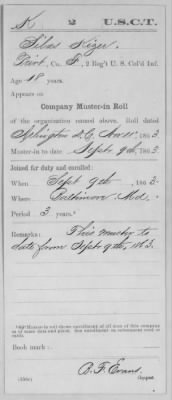 K 2 U.S.C.T.
Silas Kizer
Privt, Co. F, 2 Reg't U. S. Col'd Inf.
Age 18 years.
Appears on
Company Muster-in Roll
of the organization named above. Roll dated
Arlington D.C. Nov, 1863
Muster-in to date Sept 9th, 1863
Joined for duty and enrolled:
When Sept 9th, 1863
Where Baltimore Md
Period 3 years.*
Remarks: This muster to
date from Sept 9th, 1863.
Book mark:
B. F. Evans
(356c) Copyist.